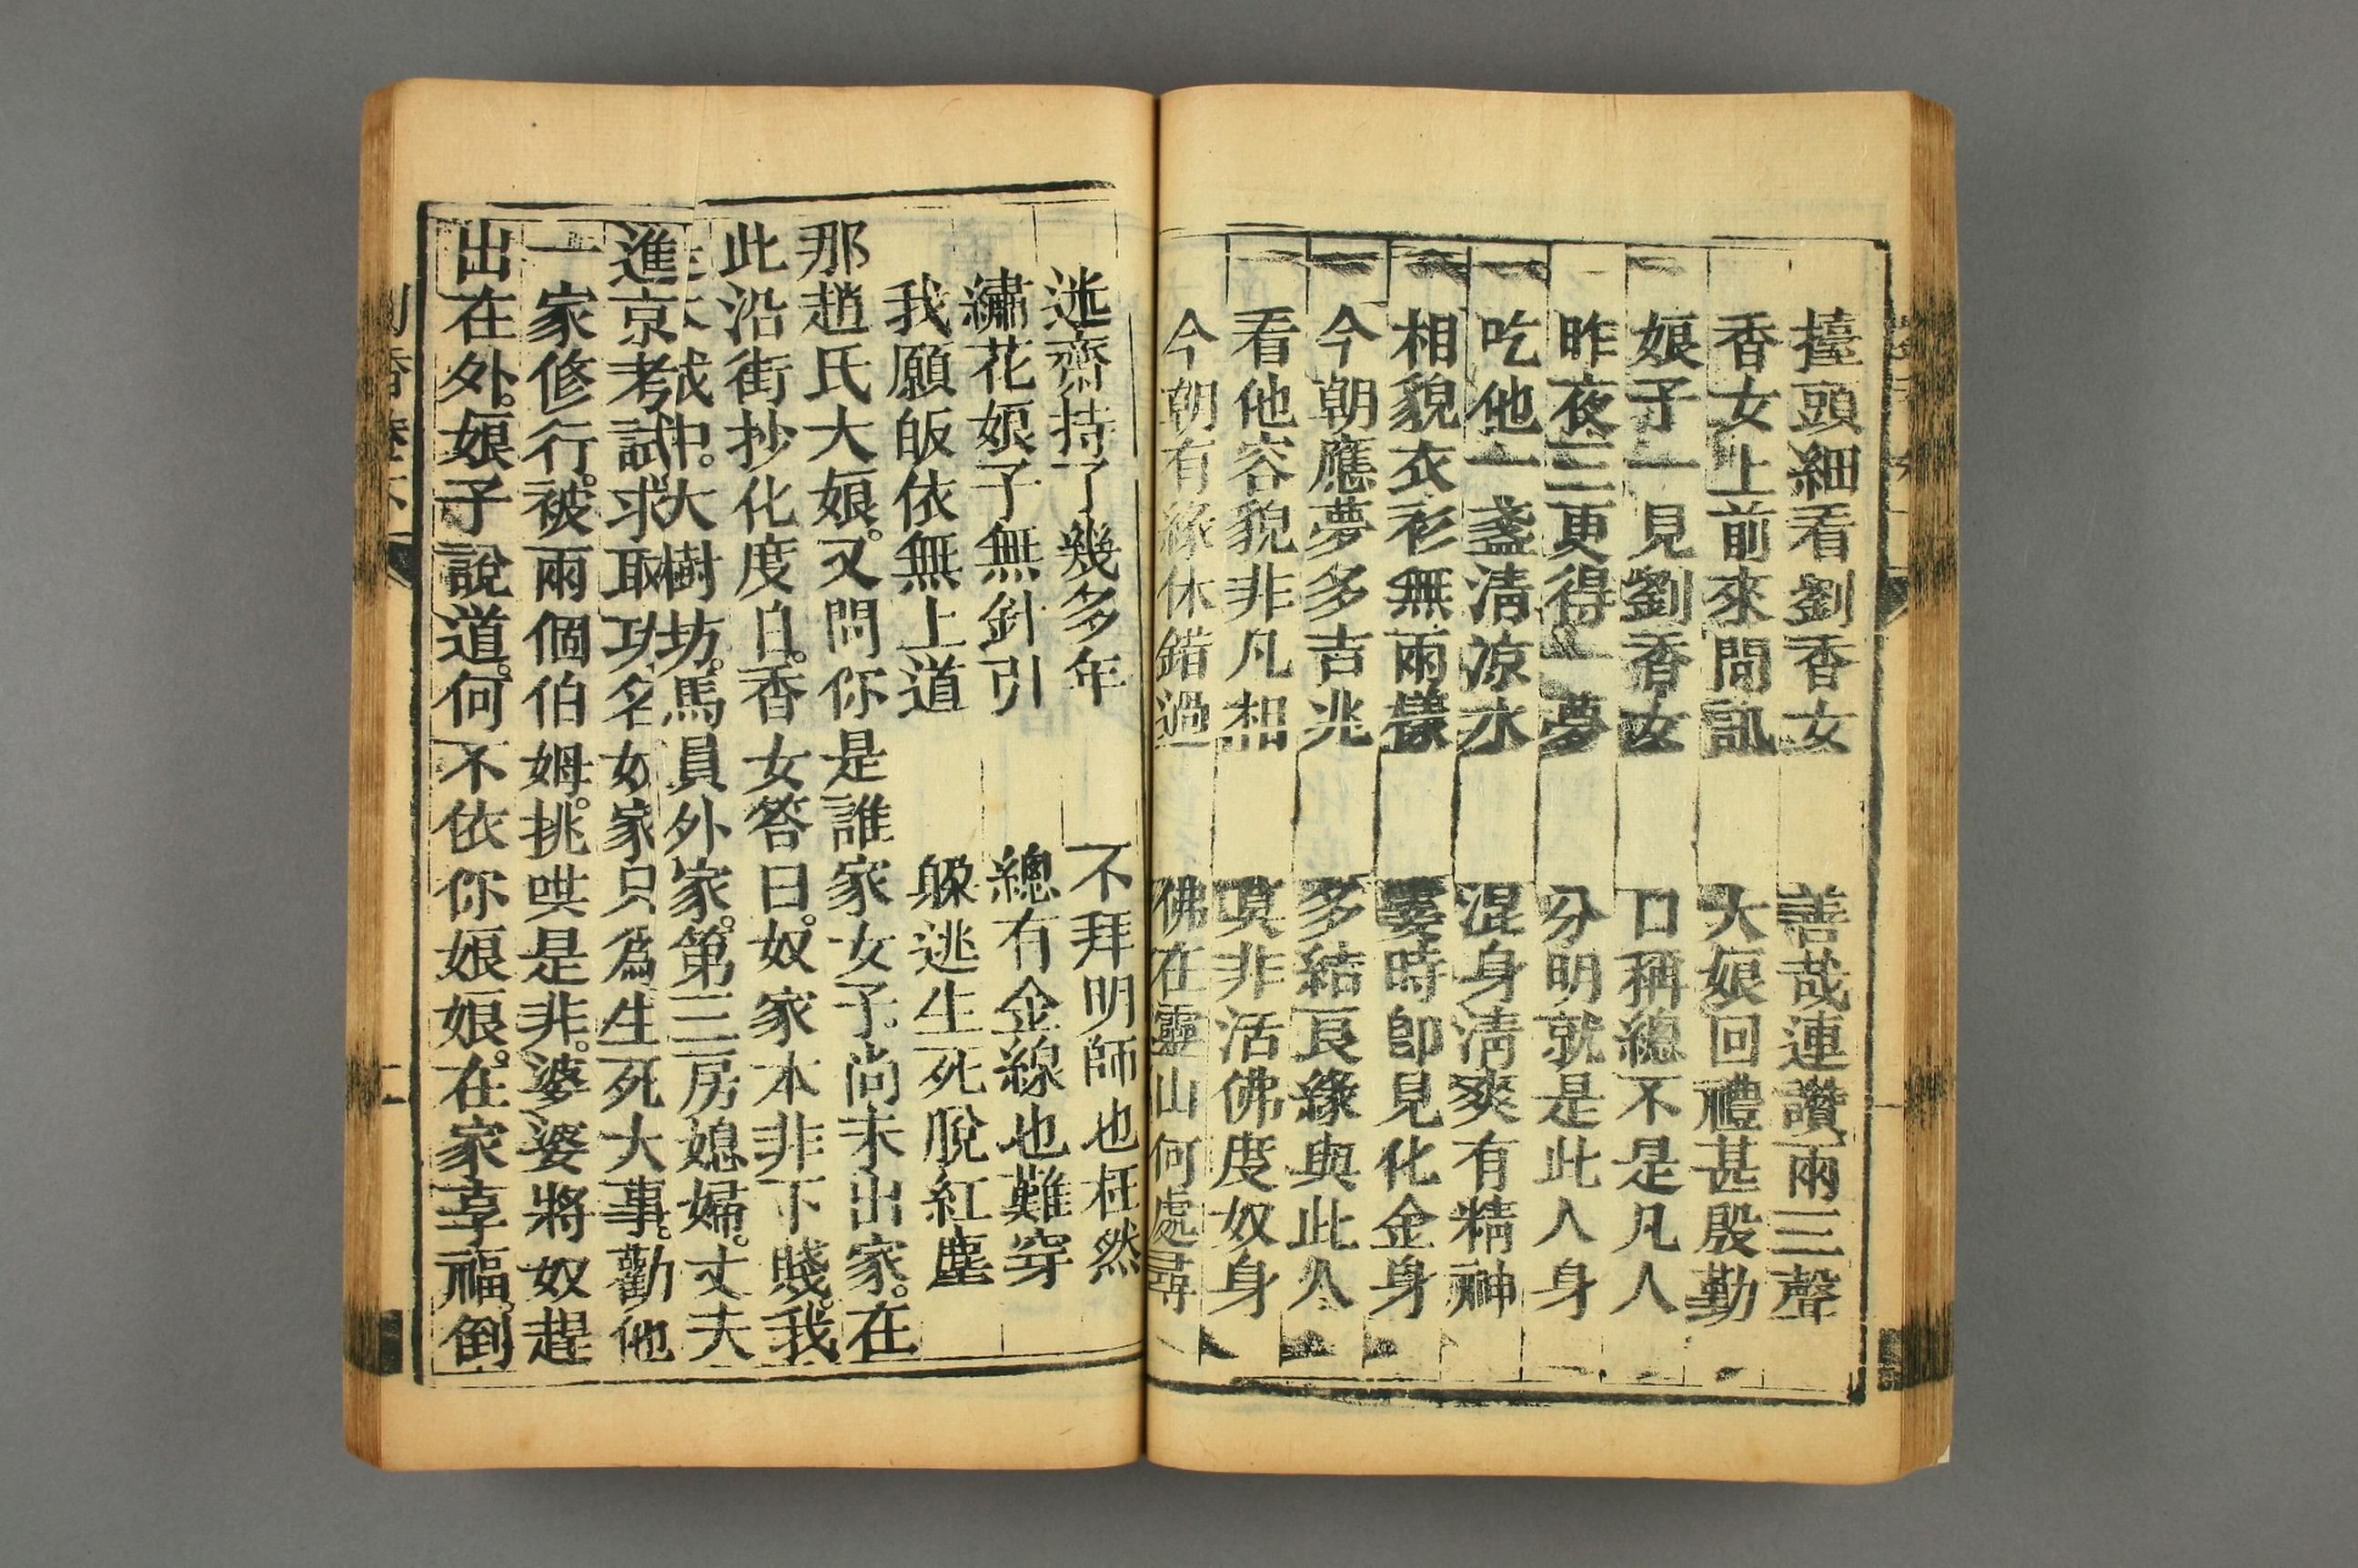 擡頭細看劉香女　善哉連讚兩三聲
香女上前來問訊　大娘回禮甚殷勤
娘子一見劉香女　口稱總不是凡人
昨夜三更得一夢　分明就是此人身
吃他一盞清涼水　混身清爽有精神
相貌衣衫無兩樣　霎時卽見化金身
今朝應夢多吉兆　多結良緣與此人
看他容貌非凡相　莫非活佛度奴身
今朝有緣休錯過　佛在靈山何處尋
迷齋持了幾多年　不拜明師也枉然
繡花娘子無針引　總有金線也難穿
我願皈依無上道　躱逃生死脫紅塵
那趙氏大娘。又問你是誰家女子。尚未出家。在
此沿街抄化度日。香女答曰。奴家本非下賤。我
本城中。大樹坊。馬員外家。第三房媳婦。丈夫
進京考試求取功名奴家只為生死大事。勸他
一家修行。被兩個伯姆。挑哄是非。婆婆將奴趕
出在外。娘子說道。何不依你娘娘。在家享福。倒
香卷下
二